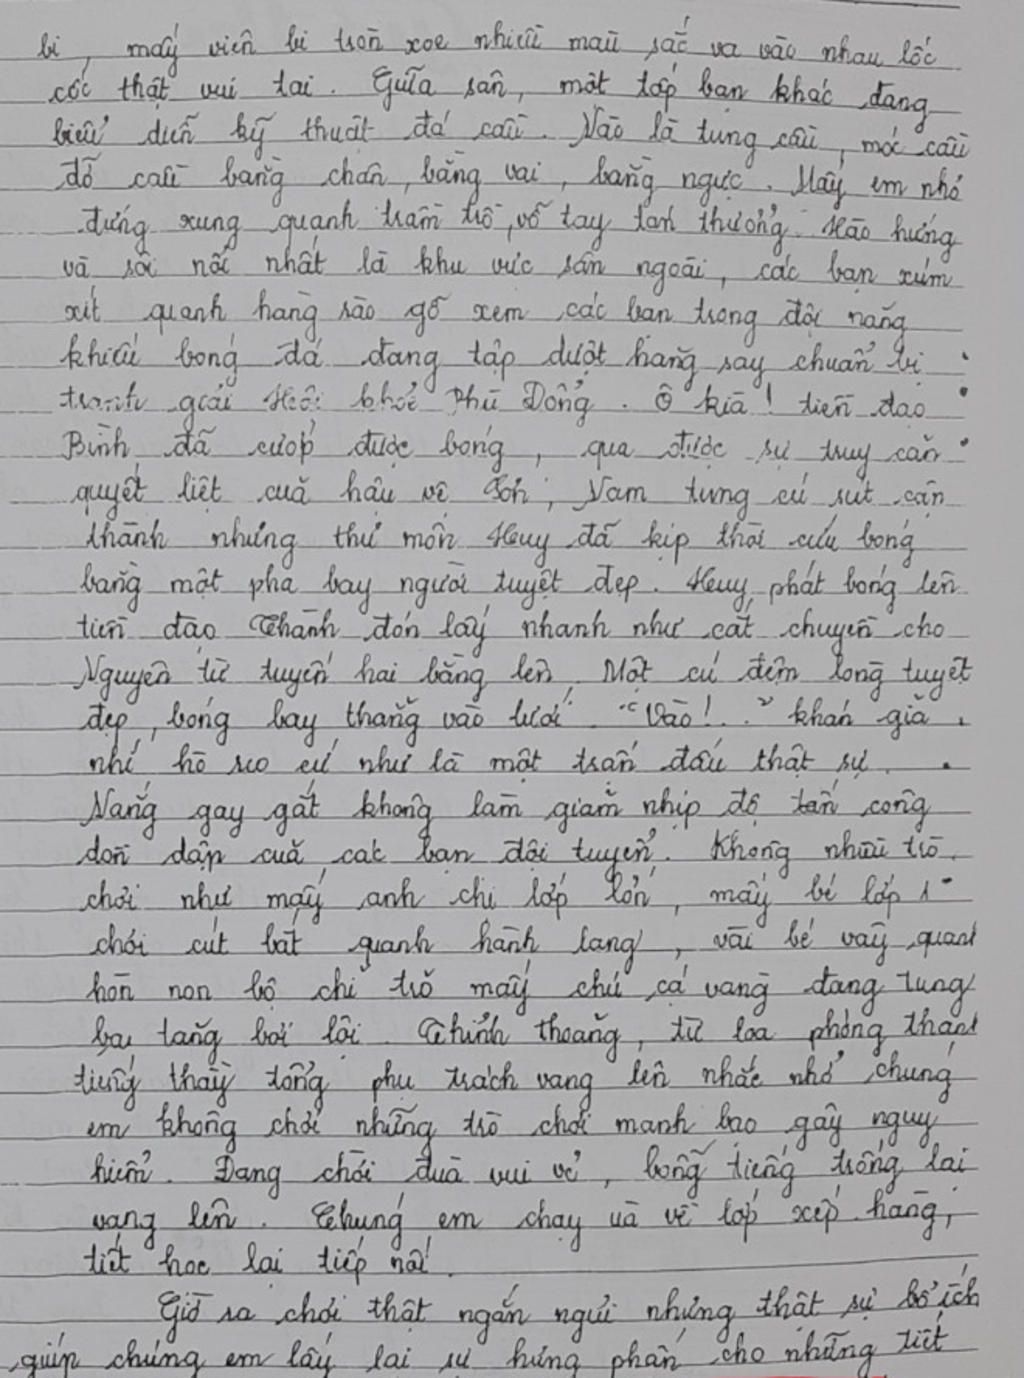 bi, mấy viên bi tròn xoe nhiều màu sắc va vào nhau lốc
cốc thật vui tai. Giữa sân, một tốp bạn khác đang
biểu diễn kỹ thuật đá cầu. Nào là tung cầu, móc cầu
đỡ cầu bằng chân, bằng vai, bằng ngực. Mấy em nhỏ
đứng xung quanh trầm trồ, vỗ tay tán thưởng. Hào hứng
và sôi nổi nhất là khu vực sân ngoài, các bạn xúm
xít quanh hàng rào gỗ xem các bạn trong đội năng
khiếu bóng đá đang tập dượt hăng say chuẩn bị
tranh giải Hội khoẻ Phù Đổng. Ô kìa! tiền đạo
Bình đã cướp được bóng, qua được sự truy cản
quyết liệt của hậu vệ Sơn, Nam tung cú sút cận
thành nhưng thủ môn Huy đã kịp thời cứu bóng
bằng một pha bay người tuyệt đẹp. Huy phát bóng lên
tiền đạo Thành đón lấy nhanh như cắt chuyền cho
Nguyên từ tuyến hai băng lên. Một cú đệm lòng tuyệt
đẹp, bóng bay thẳng vào lưới. "Vào!.." khán giả
nhí hò reo cứ như là một trận đấu thật sự.
Nắng gay gắt không làm giảm nhịp độ tấn công
dồn dập của các bạn đội tuyển. Không nhiều trò
chơi như mấy anh chị lớp lớn, mấy bé lớp 1
chơi cút bắt quanh hành lang, vài bé vây quanh
hòn non bộ chỉ trỏ mấy chú cá vàng đang tung
bơi lội. Thỉnh thoảng, từ loa phóng thanh
tiếng thầy tổng phụ trách vang lên nhắc nhở chúng
em không chơi những trò chơi mạnh bạo gây nguy
hiểm. Đang chơi đùa vui vẻ, bỗng tiếng trống lại
vang lên. Chúng em chạy ùa về lớp xếp hàng,
tiết học lại tiếp nối.
Giờ ra chơi thật ngắn ngủi nhưng thật sự bổ ích
giúp chúng em lấy lại sự hưng phấn cho những tiết